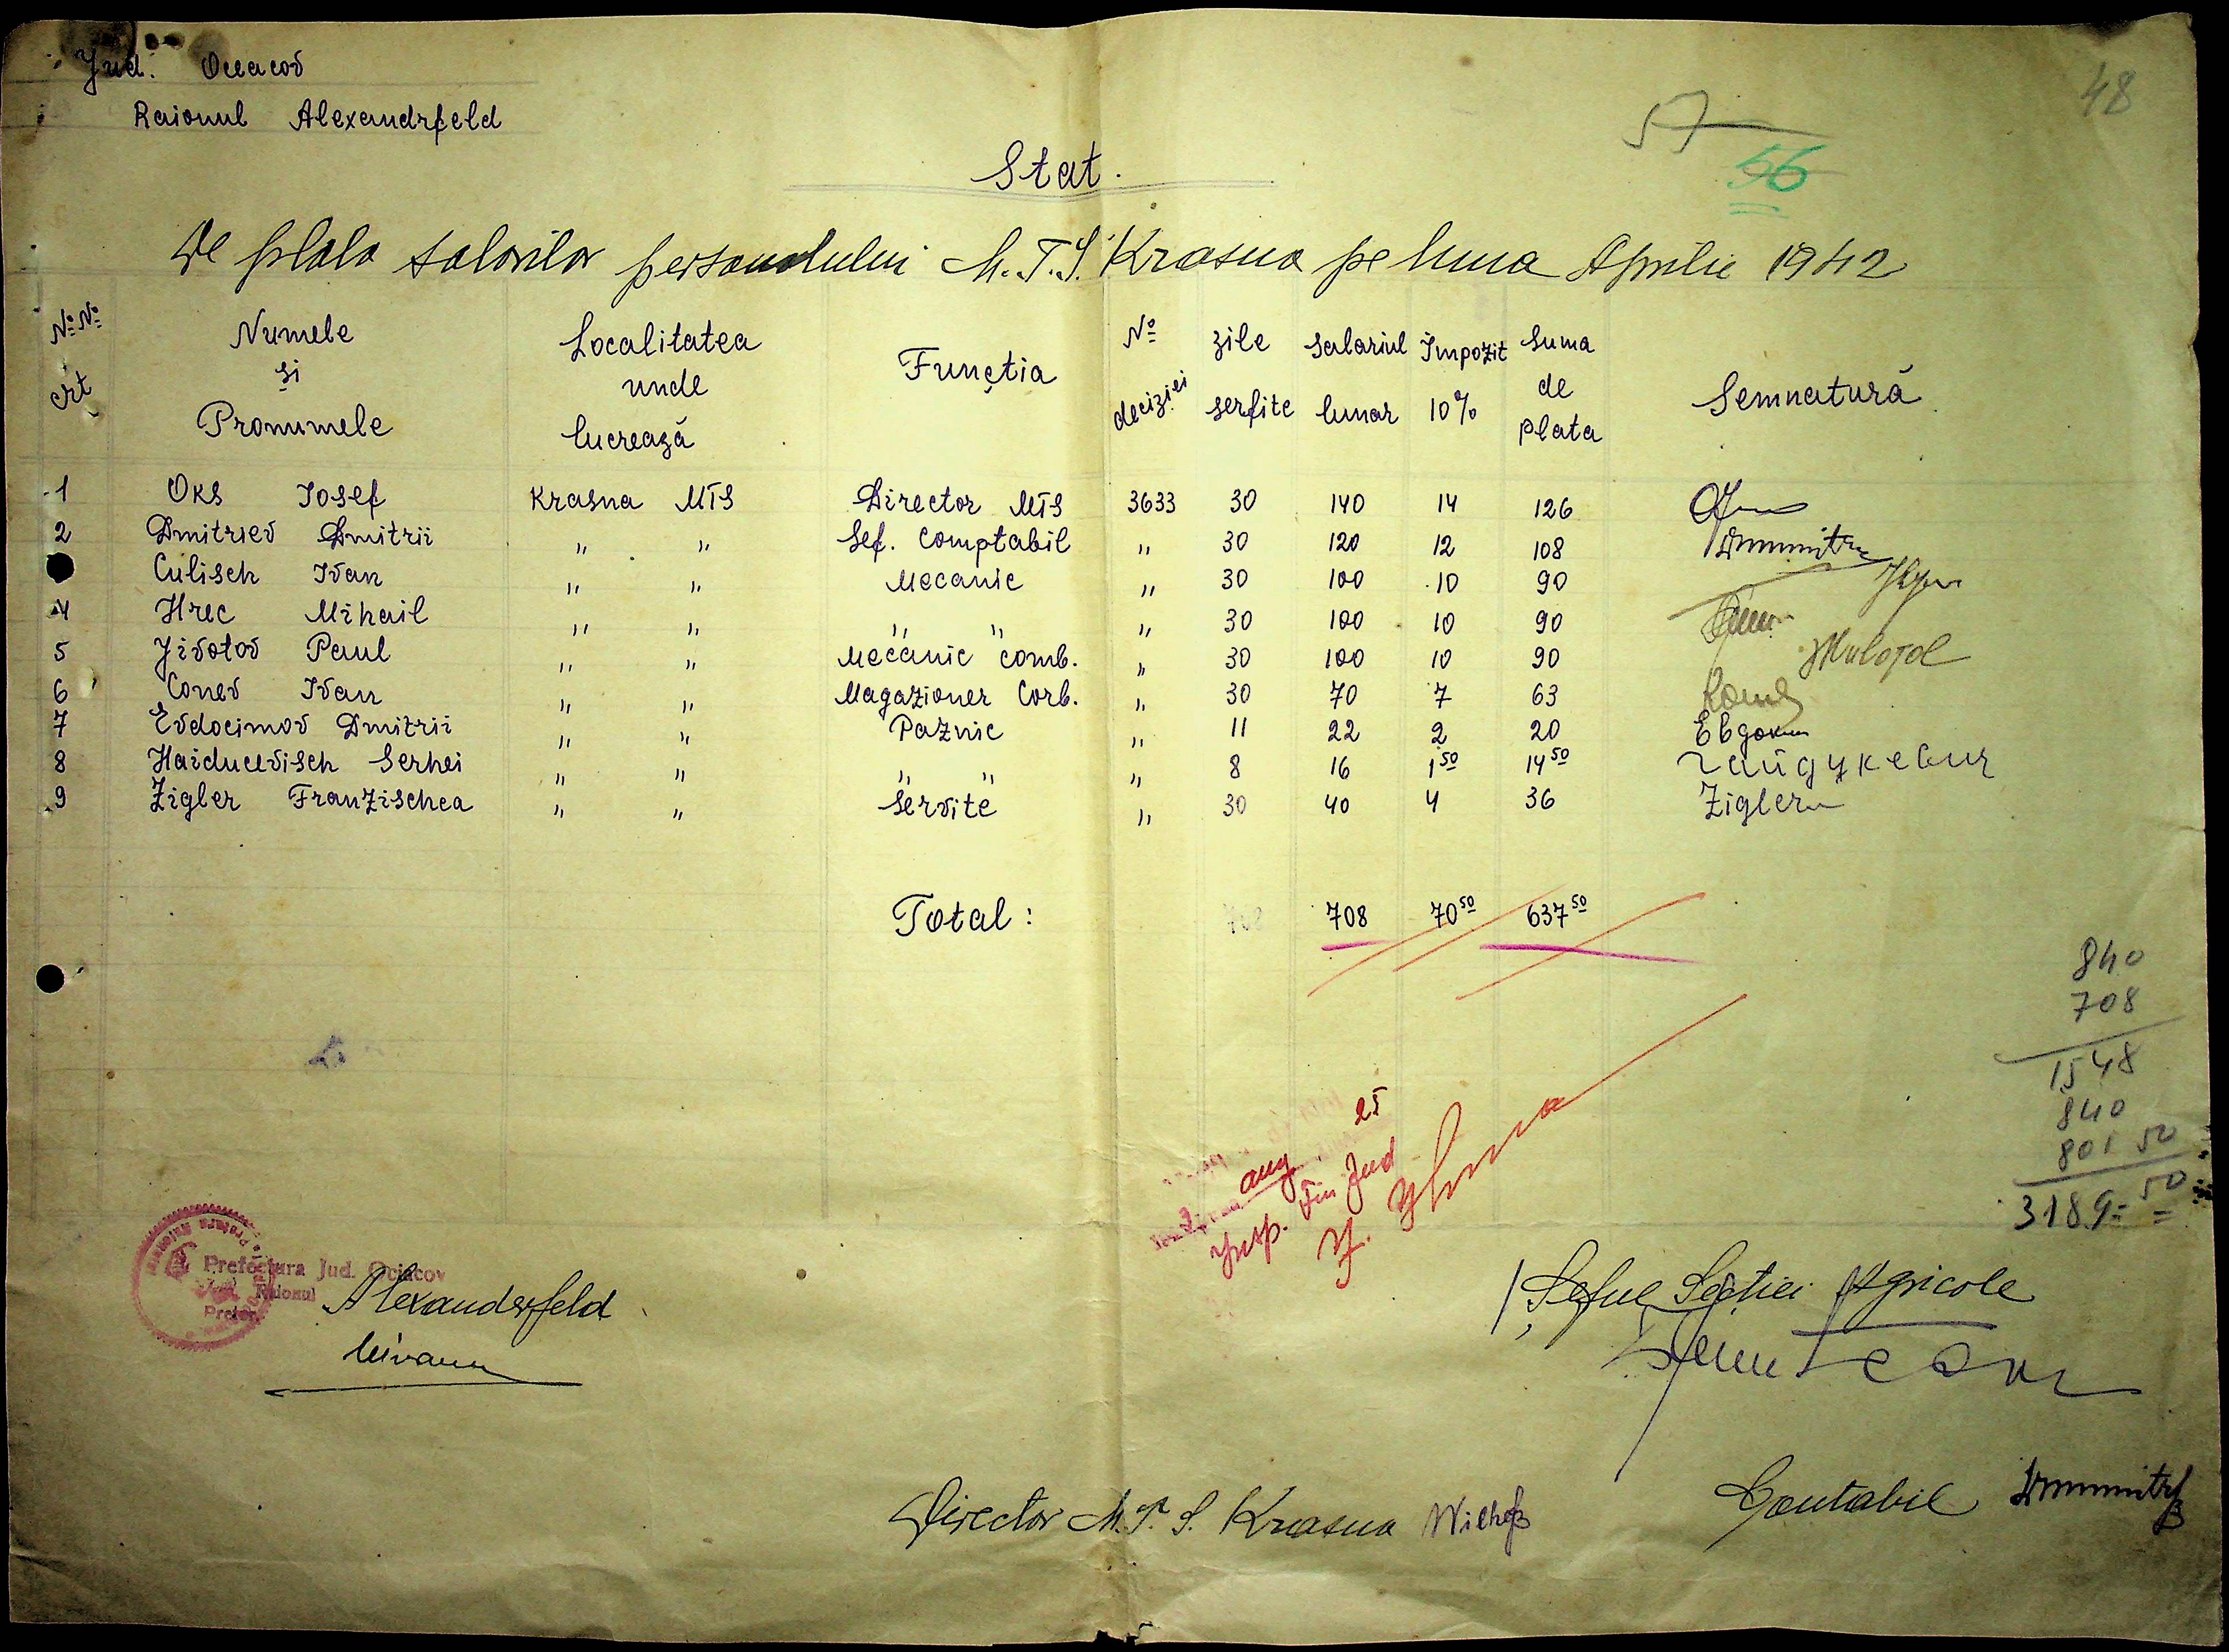 48
Jud. Oceacov
Raionul Alexandrfeld
57
56
Stat.
De plata salarilor personalului M.T.S. Krasna pe luna Aprilie 1942
№ № crt Numele și Pronumele Localitatea unde lucrează Funcția № deciziei zile serfite Salariul lunar Impozit 10% Suma de plata Semnatură
1 Oks Iosef Krasna MTS Director MTS 3633 30 140 14 126
2 Dmitriev Dmitrii " " Șef. Comptabil " 30 120 12 108
Culisch Ivan " " Mecanic " 30 100 10 90
4 Hrec Mihail " " " " " 30 100 10 90
5 Jivotov Paul " " Mecanic comb. " 30 100 10 90 Животов
6 Conev Ivan " " Magazioner Corb. " 30 70 7 63
7 Evdocimov Dmitrii " " Paznic " 11 22 2 20 Евдоким
8 Haiducevisch Serhei " " " " " 8 16 1 50 14 50 Гайдукевич
9 Zigler Franzischea " " Servite " 30 40 4 36 Zigler
Total: 708 70 50 637 50
840
708
1548
840
801 50
3189= 50
25
aug
Insp. Fin Jud
Prefectura Jud. Ociacov
Raionul Alexanderfeld
Pretor
Șeful Secției Agricole
Director M.T.S. Krasna
Contabil